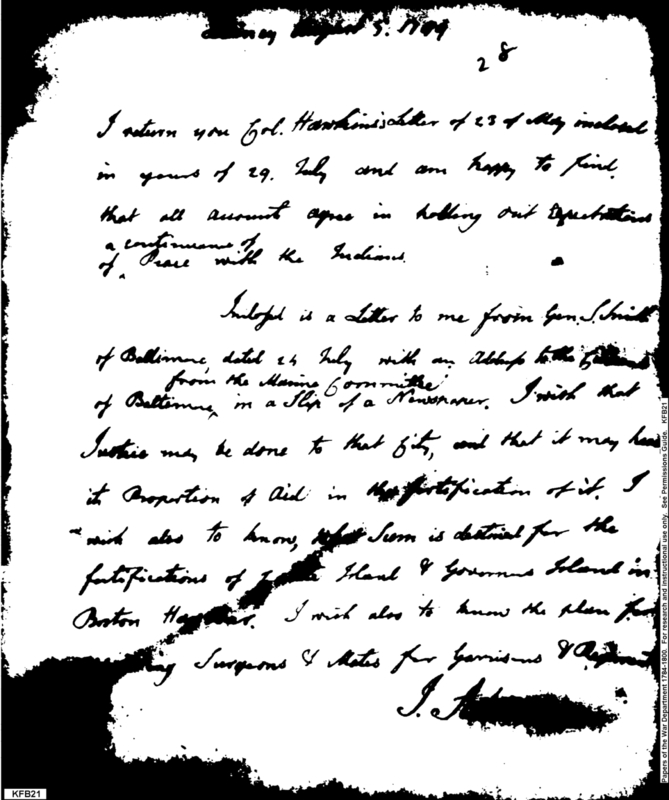 Quincy August 5. 1799
28
I return you Col. Hawkins's Letter of 23 of May inclosed
in yours of 29. July and am happy to find,
that all accounts agree in holding out Expectations
a continuance of
of ‸ Peace with the Indians.
Inclosed is a Letter to me from Gen. S. Smith
of Baltimore, dated 24 July with an Address to the Citizens
from the Marine Committee
of Baltimore, in a Slip of a Newspaper. I wish that
Justice may be done to that City, and that it may have
its Proportion of Aid in the fortification of it. I
wish also to know, what Sum is destined for the
fortifications of Castle Island & Governors Island in
Boston Harbour. I wish also to know the plan for
Surgeons & Mates for Garrisons & Regiments
J. Adams
KFB21
Papers of the War Department 1784-1800. For research and instructional use only. See Permissions Guide. KFB21